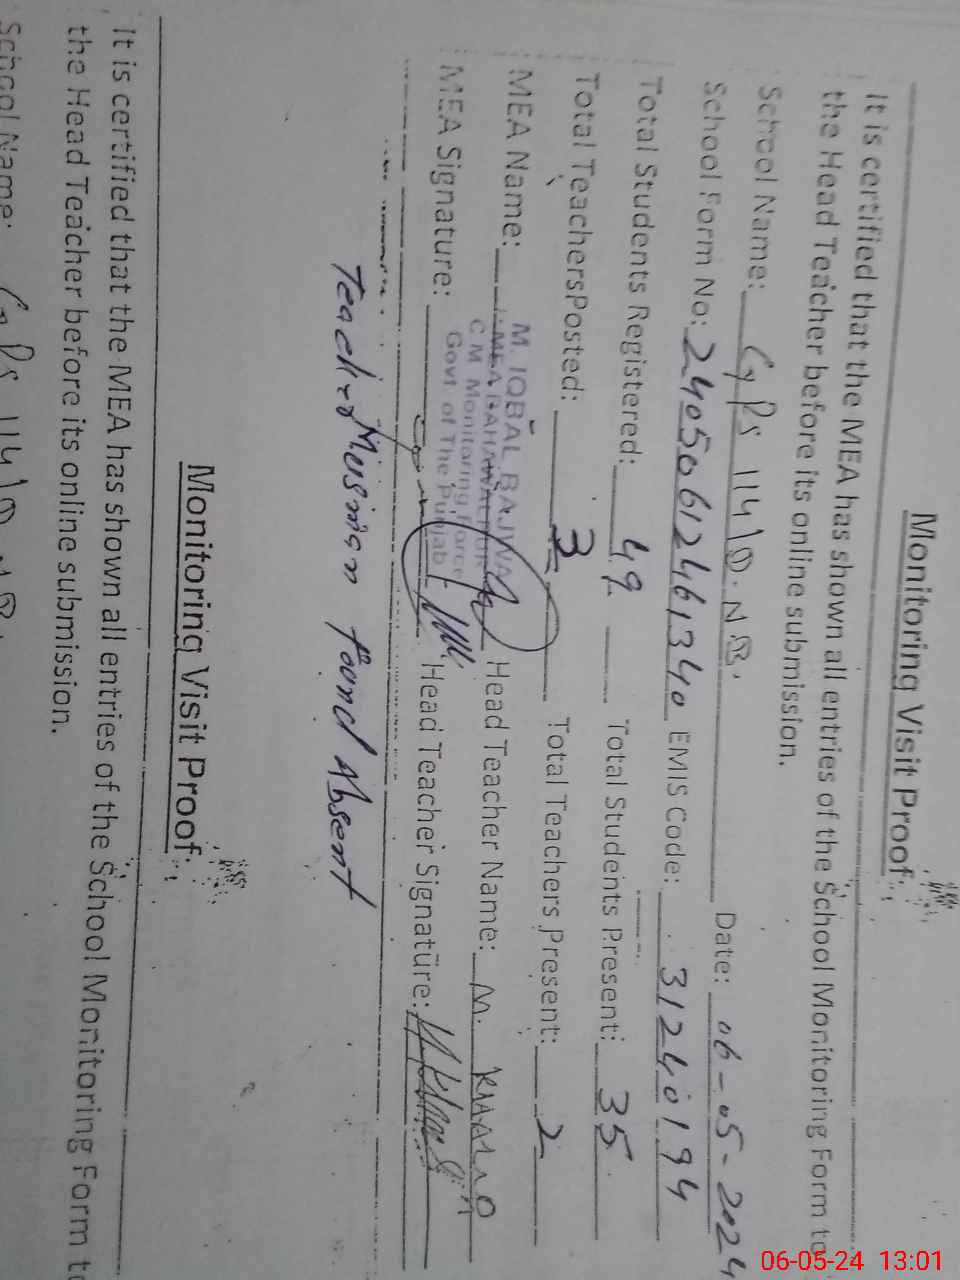 Monitoring Visit Proof
It is certified that the MEA has shown all entries of the School Monitoring Form to
the Head Teacher before its online submission.
School Name: GPS 114/D.NB. Date: 06-05-2024
School Form No: 24050612461340 EMIS Code: 31240194
Total Students Registered: 49 Total Students Present: 35
Total TeachersPosted: 3 Total Teachers Present: 2
MEA Name: Head Teacher Name: M.
M. IQBAL BAJWA
MEA BAHAWALPUR
C.M. Monitoring Force
Govt. of The Punjab
MEA Signature: Head Teacher Signature:
found Absent
Monitoring Visit Proof
It is certified that the MEA has shown all entries of the School Monitoring Form to
the Head Teacher before its online submission.
School Name: GPS 114/D.NB.
06-05-24 13:01